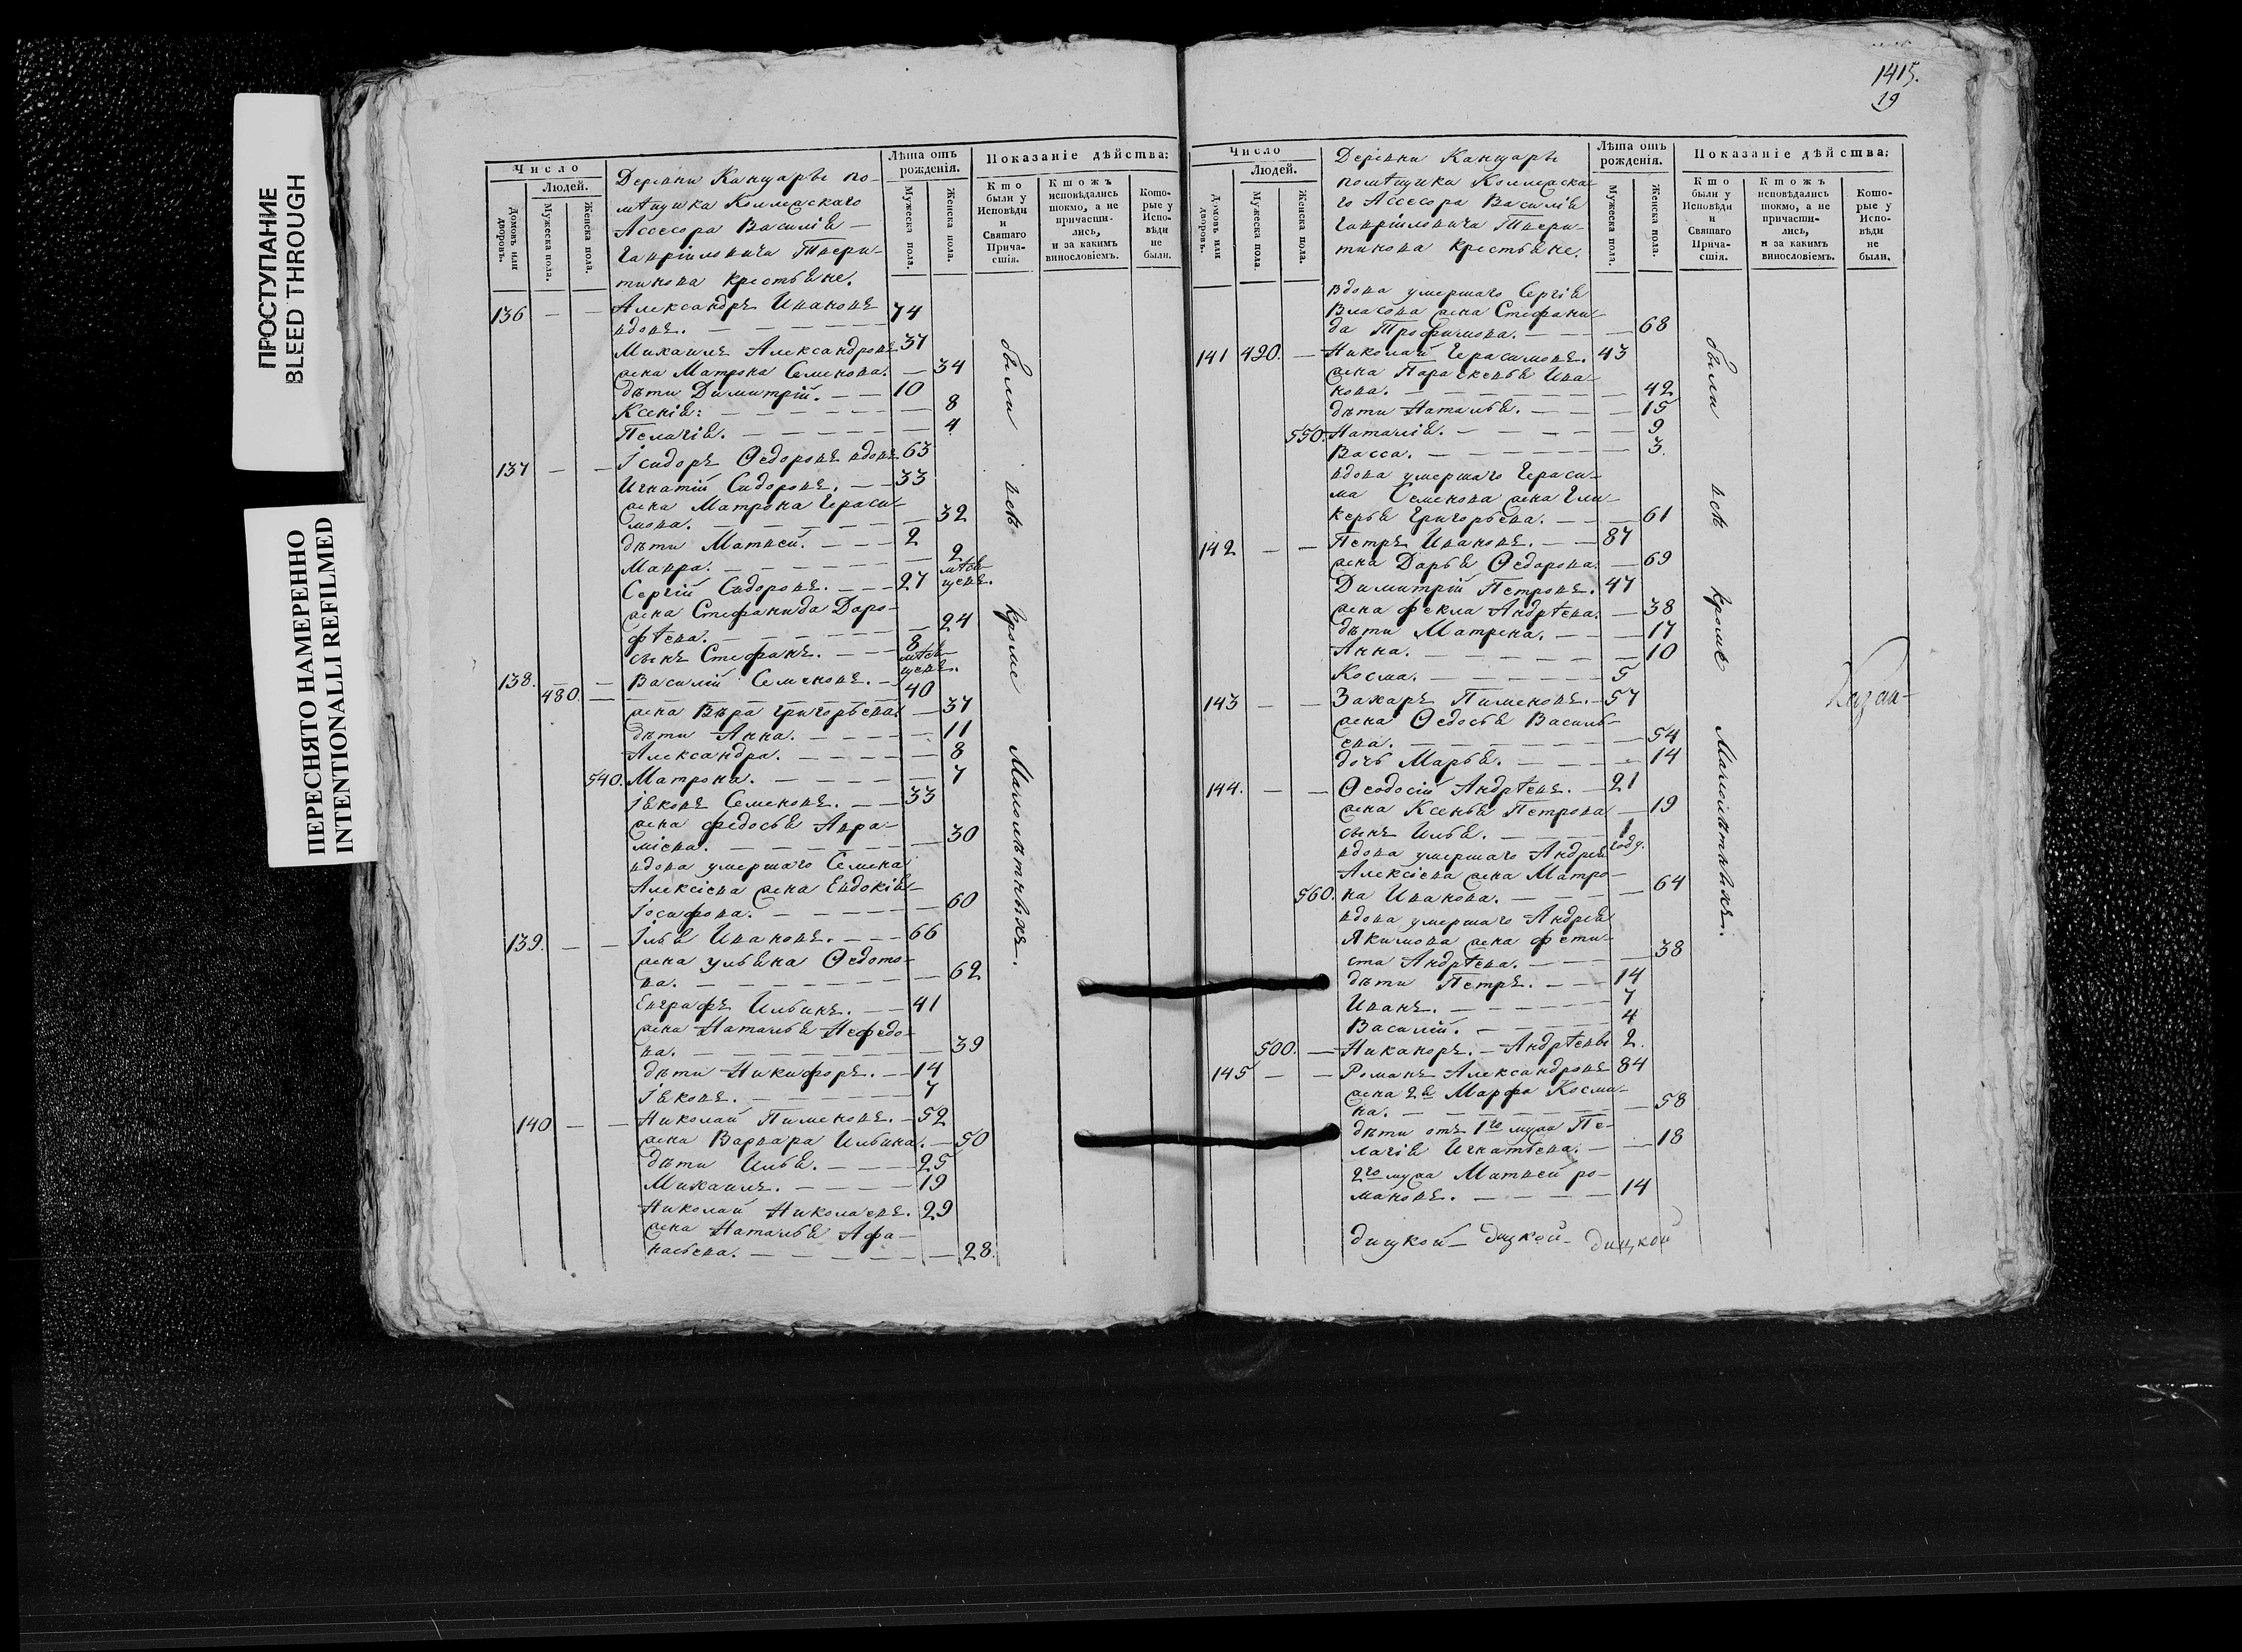 ПРОСТУПАНИЕ
BLEED THROUGH
ПЕРЕСНЯТО НАМЕРЕННО
INTENTIONALLI REFILMED
Число
Людей.
Домовъ или дворовъ.
Мужеска пола.
Женска пола.
Деревни Канцарь по-
мѣщика Коллежскаго
Ассесора Василія
Гавріиловича Твери-
тинова крестьяне.
Лѣта отъ рожденія.
Мужеска пола.
Женска пола.
Показаніе дѣйства:
Кто были у Исповѣди и Святаго Прича-стія.
Ктожъ исповѣдались токмо, а не причасти-лись, и за какимъ винословіемъ.
Кото-рые у Испо-вѣди не были.
136 — — Александръ Ивановъ
вдовъ. — 74
Михаилъ Александровъ 37
жена Матрона Семенова. — 34
дѣти Димитрій. — 10
Ксенія: — 8
Пелагія. — 4
137 — — Ісидоръ Ѳедоровъ вдовъ 63
Игнатій Сидоровъ. — 33
жена Матрона Гераси-
мова. — 32
дѣти Матвей. — 2
Мавра. — 2 мѣся-
Сергій Сидоровъ. — 27 цевъ.
жена Стефанида Доро-
фѣева. — 24
сынъ Стефанъ. — 8 мѣся-
цевъ.
138. — Василій Семеновъ. —
480. — 40
жена Вѣра Григорьева. — 37
дѣти Анна. — 11
Александра. — 8
540. Матрона. — 7
Іяковъ Семеновъ. — 33
жена Федосья Авра-
міева. — 30
вдова умершаго Семена
Алексіева жена Евдокія
Іосифова. — 60
139. — — Ілья Ивановъ. — 66
жена Ульяна Ѳедото-
ва. — 62
Евграфъ Ильинъ. — 41
жена Наталья Нефедо-
ва. — 39
дѣти Никифоръ. — 14
Іяковъ. — 7
140 — — Николай Пименовъ. — 52
жена Варвара Ильина. — 50
дѣти Илья. — 25
Михаилъ. — 19
Николай Николаевъ. 29
жена Наталья Афа-
насьева. — 28.
были всѣ кроме Малолѣтныхъ.
1415.
19
Число
Людей.
Домовъ или дворовъ.
Мужеска пола.
Женска пола.
Деревни Канцарь
помѣщика Коллежска-
го Ассесора Василія
Гавріиловича Твери-
тинова крестьяне.
Лѣта отъ рожденія.
Мужеска пола.
Женска пола.
Показаніе дѣйства:
Кто были у Исповѣди и Святаго Прича-стія.
Ктожъ исповѣдались токмо, а не причасти-лись, и за какимъ винословіемъ.
Кото-рые у Испо-вѣди не были.
вдова умершаго Сергія
Власова жена Стефани-
да Трофимова. — 68
141 420. — Николай Герасимовъ. 43
жена Параскевья Ива-
нова. — 42
дѣти Наталья. — 15
550. Наталія. — 9
Васса. — 3.
вдова умершаго Гераси-
ма Семенова жена Гли-
керья Григорьева. — 61
142 — — Петръ Ивановъ. — 87
жена Дарья Ѳедорова. — 69
Димитрій Петровъ. 47
жена Фекла Андрѣева. — 38
дѣти Матрена. — 17
Анна. — 10
Косма. — 5
143 — — Захаръ Пименовъ. — 57
жена Ѳедосья Василь-
ева. — 54
дочь Марья. — 14
144. — — Ѳеодосій Андрѣевъ. — 21
жена Ксенья Петрова — 19
сынъ Илья. — 1
вдова умершаго Андрея году.
Алексіева жена Матро-
560. на Иванова. — 64
вдова умершаго Андрея
Якимова жена Фети-
ста Андрѣева. — 38
дѣти Петръ. — 14
Иванъ. — 7
Василій. — 4
500. — Никаноръ. — Андрѣевы 2.
145 — — Романъ Александровъ 84
жена 2я Марфа Косми-
на. — 58
дѣти отъ 1го мужа Пе-
лагія Игнатьева. — 18
2го мужа Матвей Ро-
мановъ. — 14
дицкой — дицкой — дицкой
были всѣ кромѣ Малолѣтныхъ.
Казан-